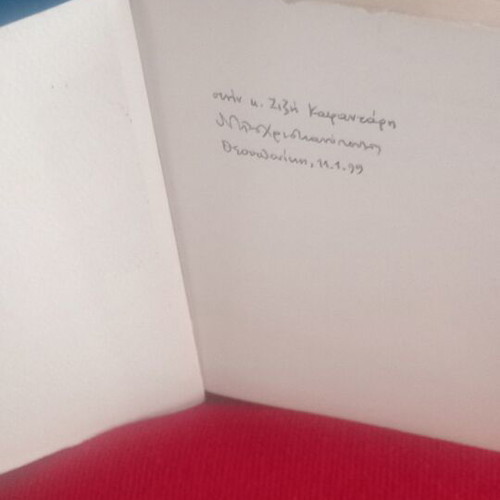 στην κ. Ζιζή Καφαντάρη
Ντίνος Χριστιανόπουλος
Θεσσαλονίκη, 11.1.99